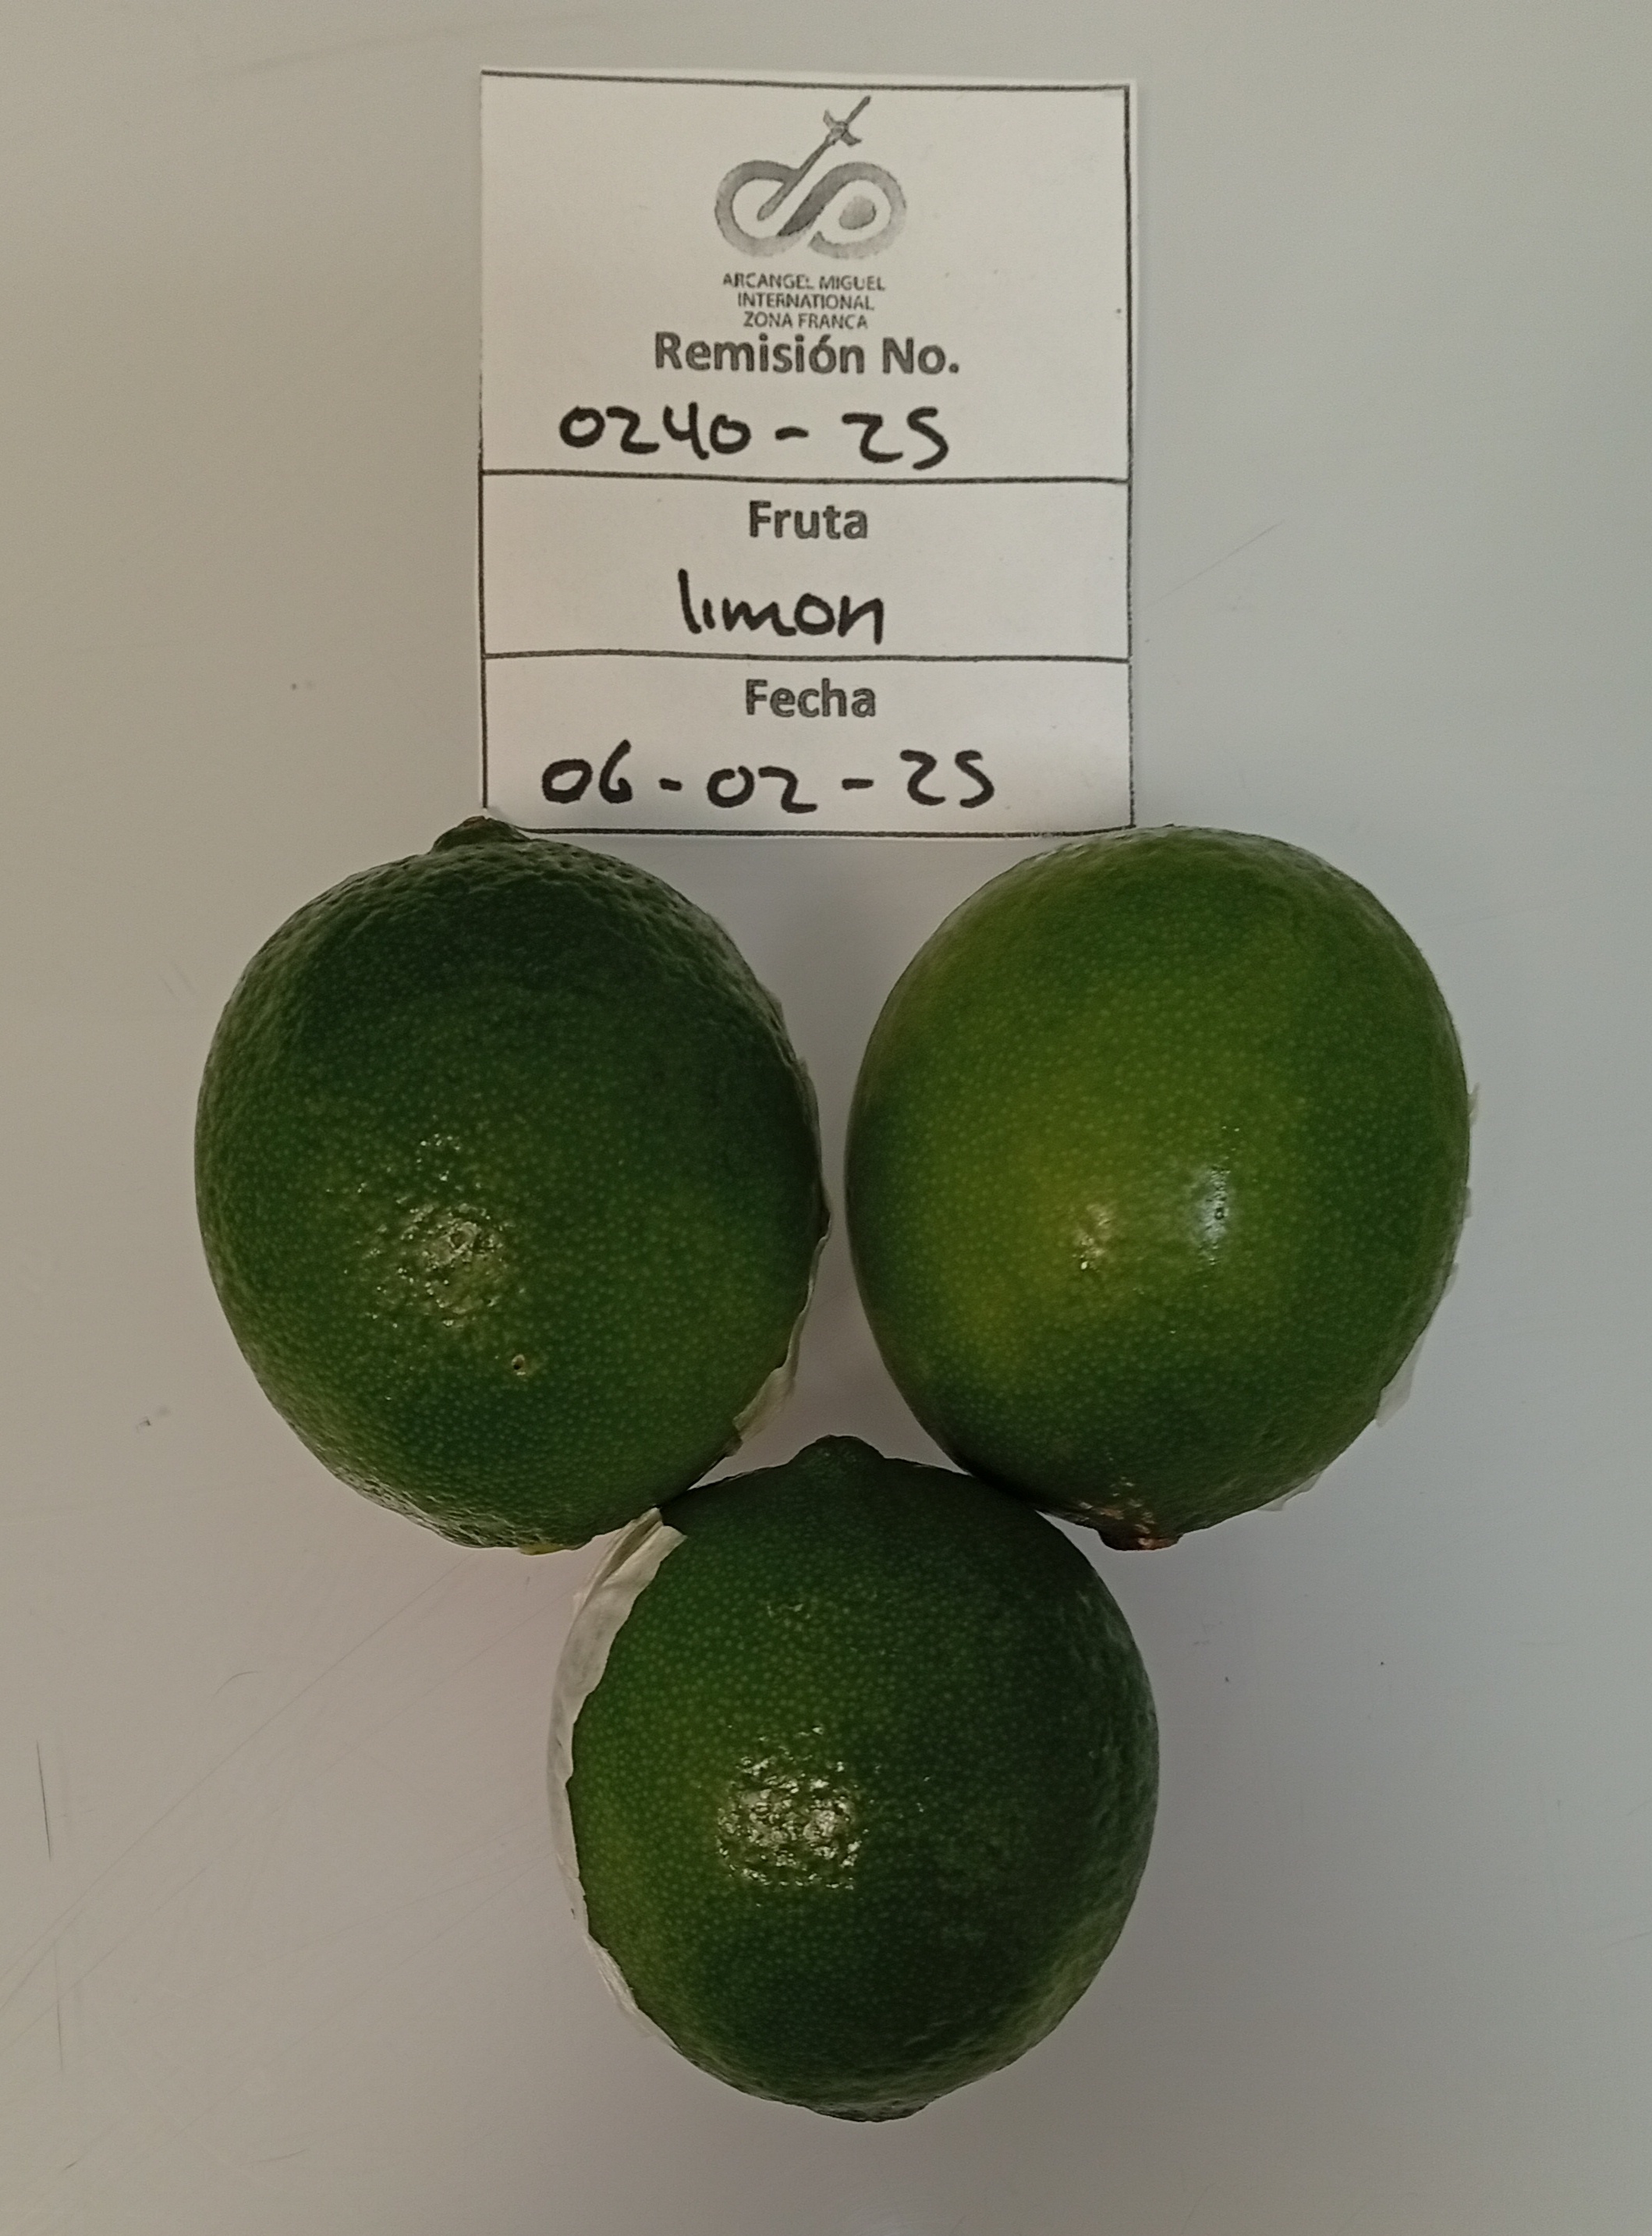 ARCANGEL MIGUEL
INTERNATIONAL
ZONA FRANCA
Remisión No.
0240-25
Fruta
limon
Fecha
06-02-25